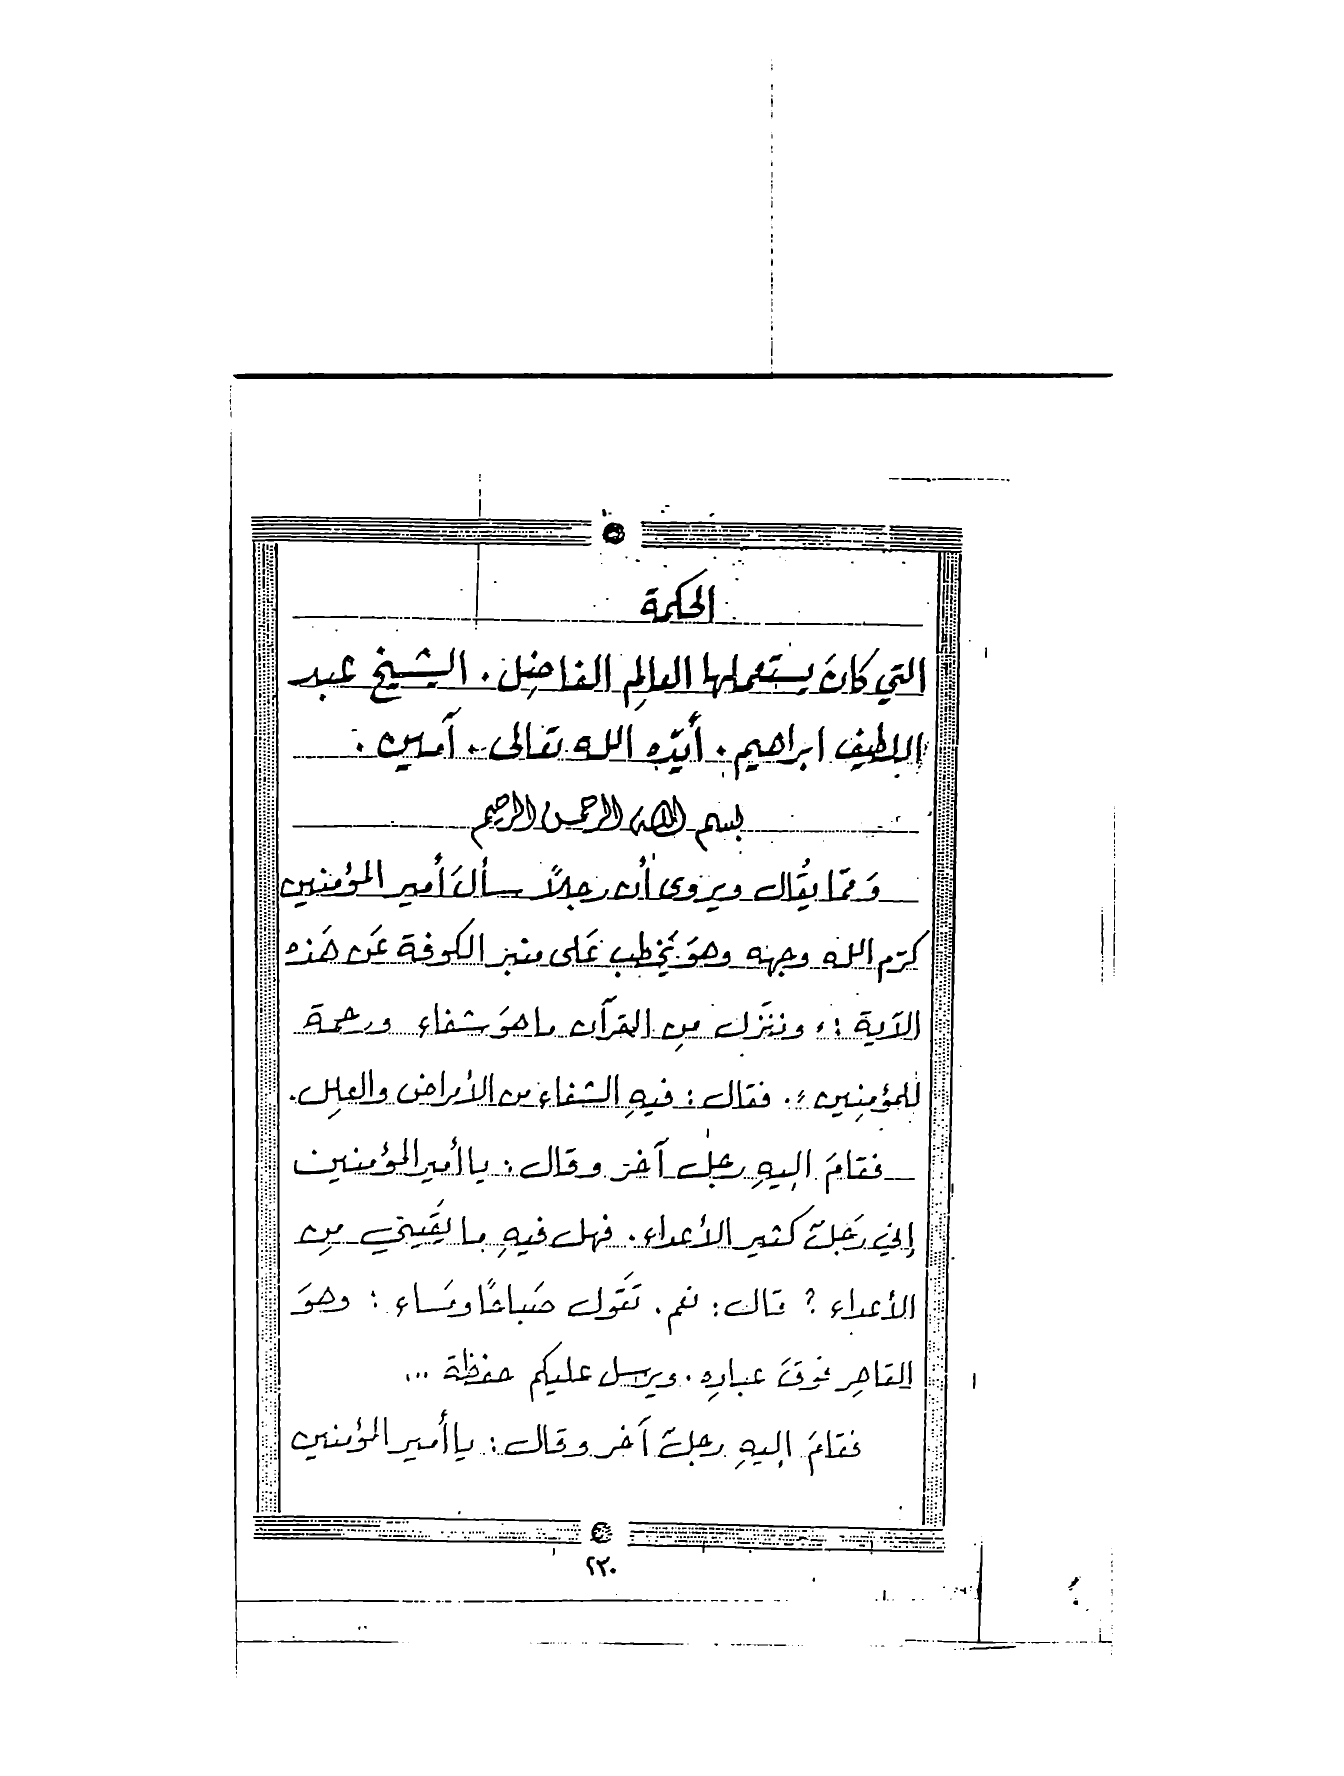 الحكمة
التي كانَ يستعملها العالِم الفاضِل . الشيخ عبد
اللطيف ابراهيم . أيّده الله تعالى . آمين .
بسم الله الرحمن الرحيم
وَممّا يُقال ويروى أن رجلاً سألَ أمير المؤمنين
كرّم الله وجهه وهوَ يَخطب عَلى منبر الكوفة عَن هَذه
الآية : « وننَزّل مِن القرآن ما هوَ شفاء ورحمة
للمؤمِنين » . فقال : فيهِ الشفاء من الأمراض والعِلل .
فقامَ إليهِ رجل آخر وقال : يا أمير المؤمنين
إني رَجلٌ كثير الأعداء . فهل فيهِ ما يَقيني مِن
الأعداء ؟ قال : نعم . تَقول صَباحًا ومَساء : وهوَ
القاهِر فوقَ عبادِه . ويرسل عليكم حفظة ...
فقامَ إليهِ رجلٌ آخر وقال : يا أمير المؤمنين
٢٣٠